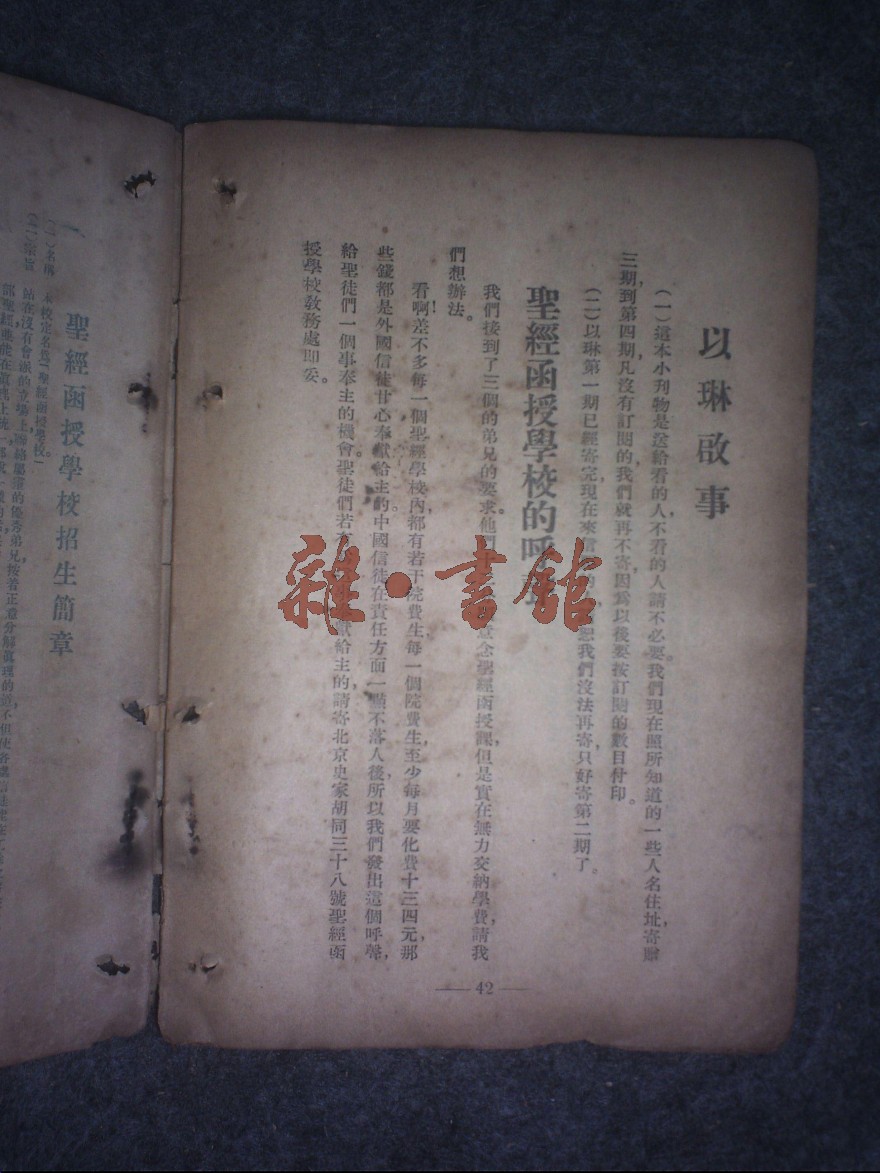 以琳啟事
(一)這本小刊物是送給看的人不看的人請不必要。我們現在照所知道的一些人名住址,寄贈
三期,到第四期凡沒有訂閱的,我們就再不寄,因爲以後要按訂閱的數目付印。
(二)以琳第一期已經寄完,現在來信 我們沒法再寄,只好寄第二期了。
聖經函授學校的呼
我們接到了三個的弟兄的要求,他們 意念聖經函授課,但是實在無力交納學費,請我
們想辦法。
看啊!差不多每一個聖經學校內,都有若干院費生,每一個院費生至少每月要化費十三四元,那
些錢都是外國信徒甘心奉獻給主的。中國信徒在責任方面一點不落人後,所以我們發出這個呼聲,
給聖徒們一個事奉主的機會。聖徒們若 獻給主的,請寄北京史家胡同三十八號聖經函
授學校教務處即妥。
— 42 —
聖經函授學校招生簡章
(一)名稱 本校定名爲「聖經函授學校」。
(二)宗旨 站在沒有會派的立場上聯絡 的優秀弟兄按着正意分解眞理的道,不但使各
雜·書館